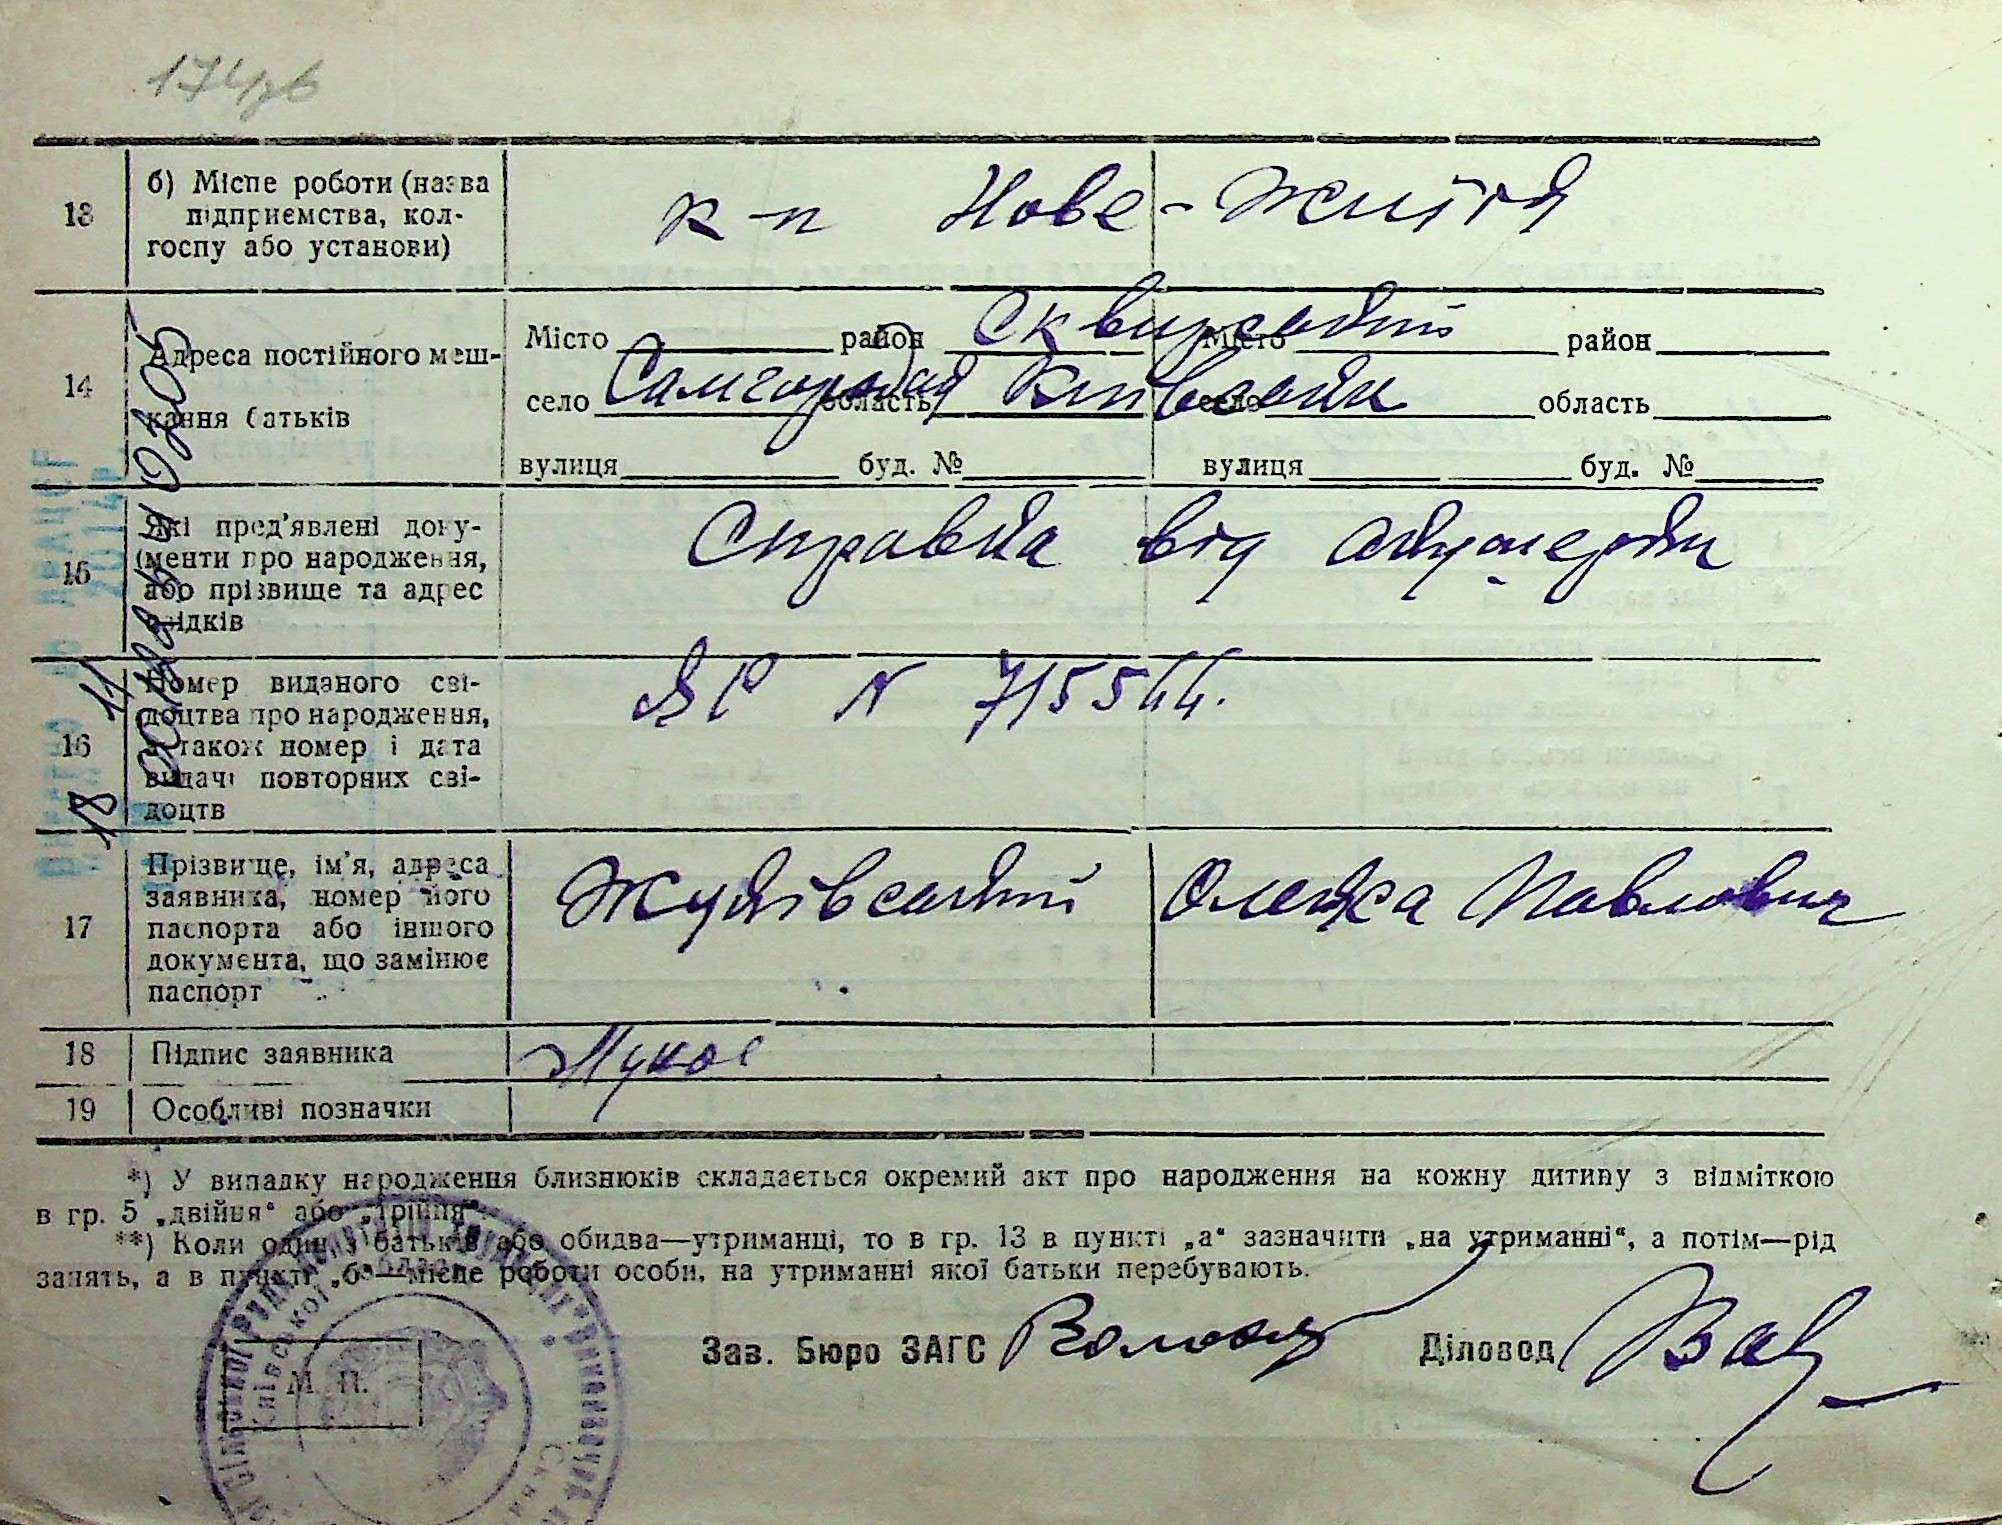 174зв
13
б) Місце роботи (назва
підприємства, кол-
госпу або установи)
к-п Нове-Життя
14
Адреса постійного меш-
кання батьків
Місто район Сквирський Місто район
село Самгородок область Київська село область
вулиця буд. № вулиця буд. №
15
Які пред'явлені доку-
менти про народження,
або прізвище та адрес
свідків
Справка від акушерки
16
Номер виданого сві-
доцтва про народження,
а також номер і дата
видачі повторних сві-
доцтв
ЯР N 715544.
17
Прізвище, ім'я, адреса
заявника, номер його
паспорта або іншого
документа, що замінює
паспорт
Жуківський Олекса Павлович
18
Підпис заявника
19
Особливі позначки
*) У випадку народження близнюків складається окремий акт про народження на кожну дитину з відміткою
в гр. 5 „двійня“ або „трійня“.
**) Коли один з батьків або обидва—утриманці, то в гр. 13 в пункті „а“ зазначити „на утриманні“, а потім—рід
занять, а в пункті „б“—місце роботи особи, на утриманні якої батьки перебувають.
Зав. Бюро ЗАГС
Діловод
М. П.